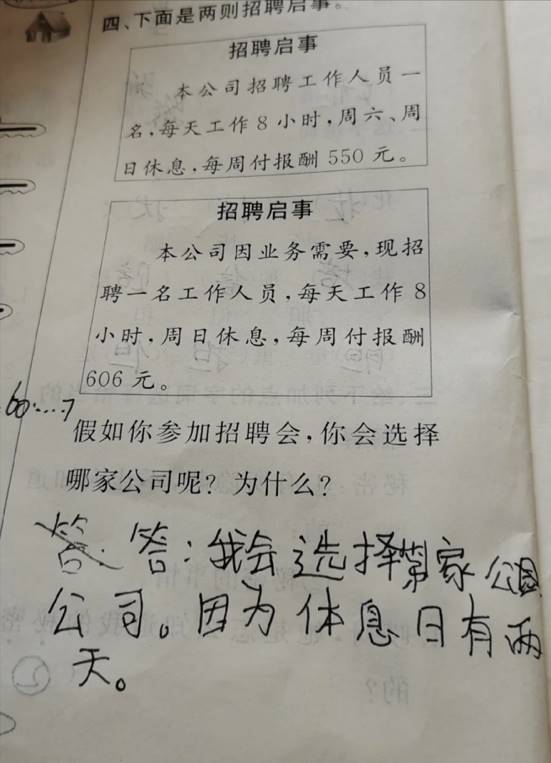 四、下面是两则招聘启事。
招聘启事
本公司招聘工作人员一
名,每天工作8小时,周六、周
日休息,每周付报酬550元。
招聘启事
本公司因业务需要,现招
聘一名工作人员,每天工作8
小时,周日休息,每周付报酬
606元。
60……7
假如你参加招聘会,你会选择
哪家公司呢?为什么?
答:我会选择第家
公司。因为休息日有两
天。